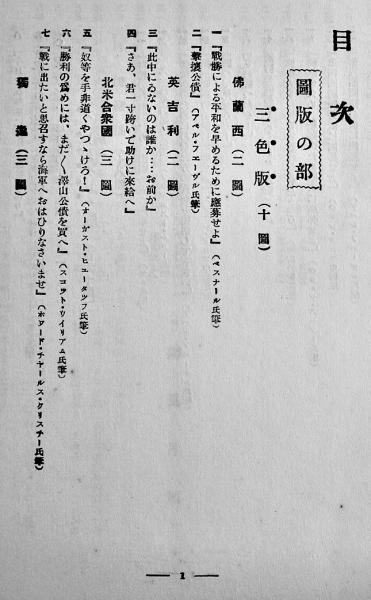 目次
圖版の部
三色版（十圖）
佛蘭西（二圖）
一『戰勝による平和を早めるために應募せよ』（ベスナール氏筆）
二『擊攘公債』（アベル・フエーヴル氏筆）
英吉利（二圖）
三『此中にゐないのは誰か……お前か』
四『さあ、君一寸跨いで助けに來給へ』
北米合衆國（三圖）
五『奴等を手非道くやつゝけろ！』（オーガスト・ヒユータツフ氏筆）
六『勝利の爲めには、まだ〳〵澤山公債を買へ』（スコツト・ウイリアム氏筆）
七『戰に出たいと思召すなら海軍へおはひりなさいませ』（ホワード・チヤールス・クリスチー氏筆）
獨逸（三圖）
1